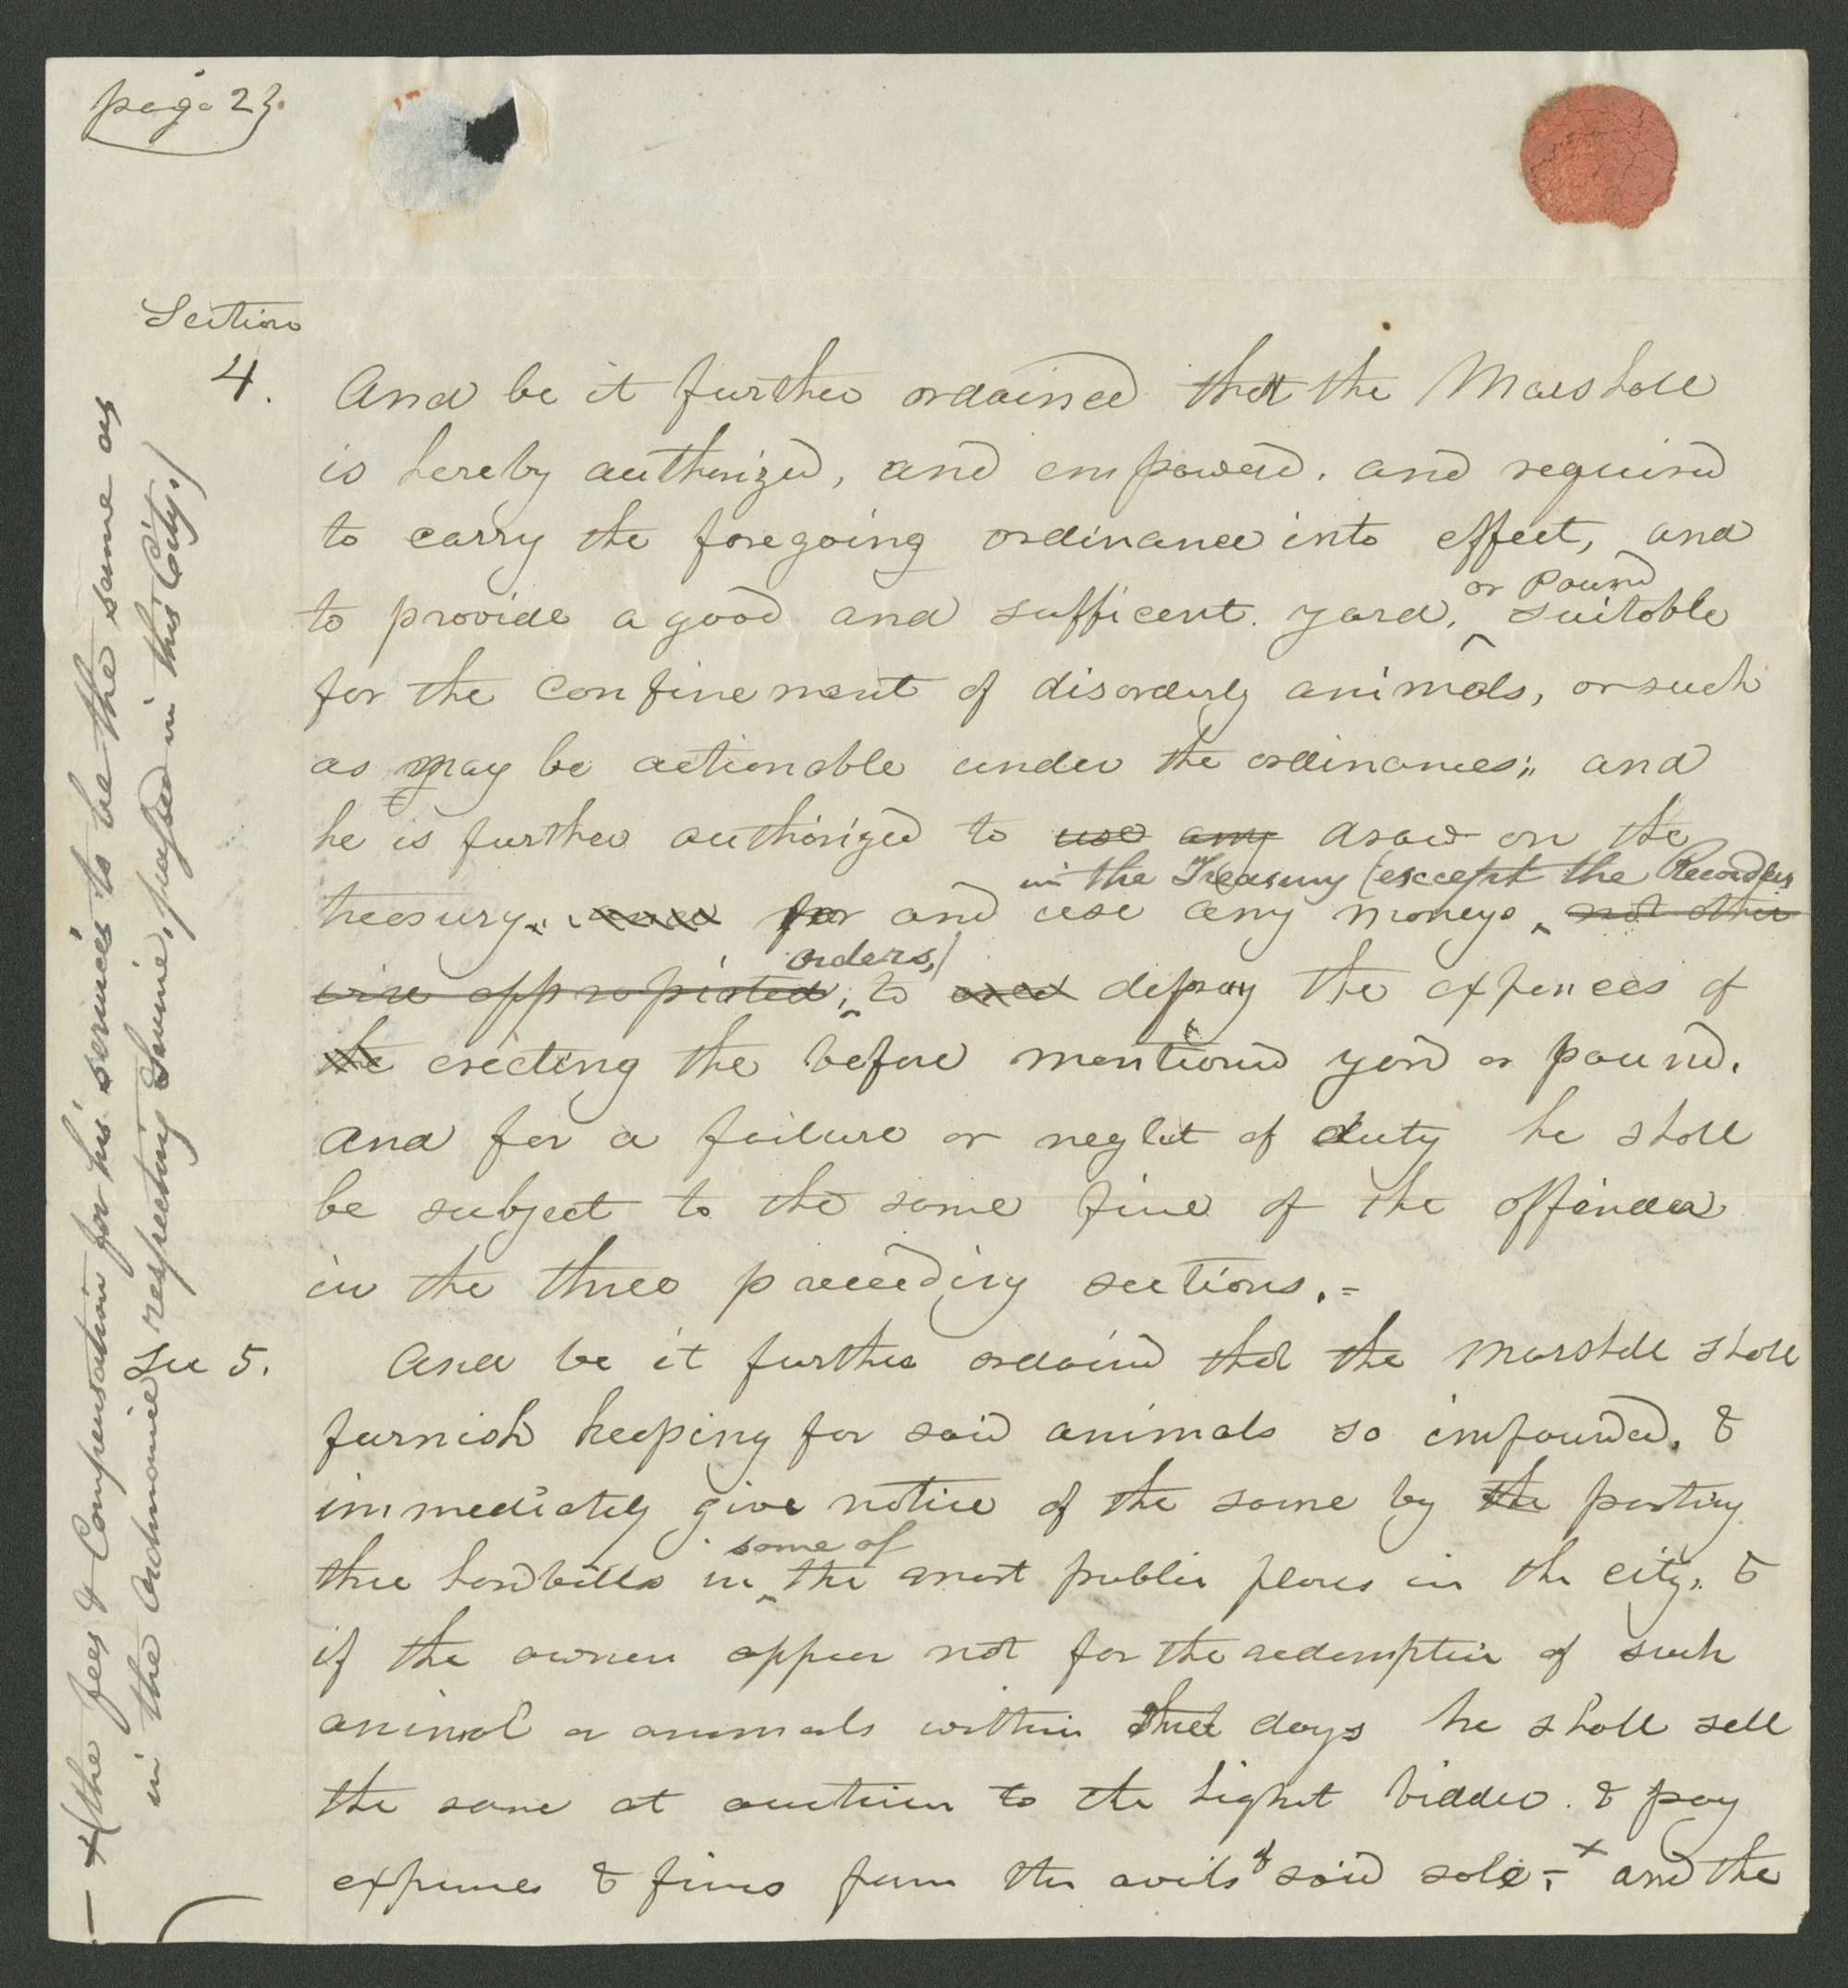 page 23.
Section
4. And be it further ordained that the Marshall
is hereby authorized, and empowered, and required
to carry the foregoing ordinance into effect, and
or Pound
to provide a good and sufficent. yard, ^ suitable
for the confinement of disorderly animals, or such
as may be actionable under the ordinances; and
he is further authorized to use any draw on the
in the Treasury (except the Recorders
treasury, and for and use any moneys ^ not other
orders,)
wise appropiated; ^ to and defray the expences of
the erecting the before mentiond yard or pound.
And for a failure or neglect of duty he shall
be subject to the same fine of the offender
in the three preceeding sections.=
Sec 5. And be it further ordaind that the Marshall shall
furnish keeping for said animals so impounded, &
immediately give notice of the same by the posting
some of
three handbills in ^ the most public places in the city, &
if the owner appear not for the redemption of such
animal or animals within three days he shall sell
the same at auction to the highest bidder. & pay
expenses & fines from the avails of said sale;- x and the
x (the fees & Compensation for his services to be the same as
in the Ordinance respecting Swine, passed in this City.)